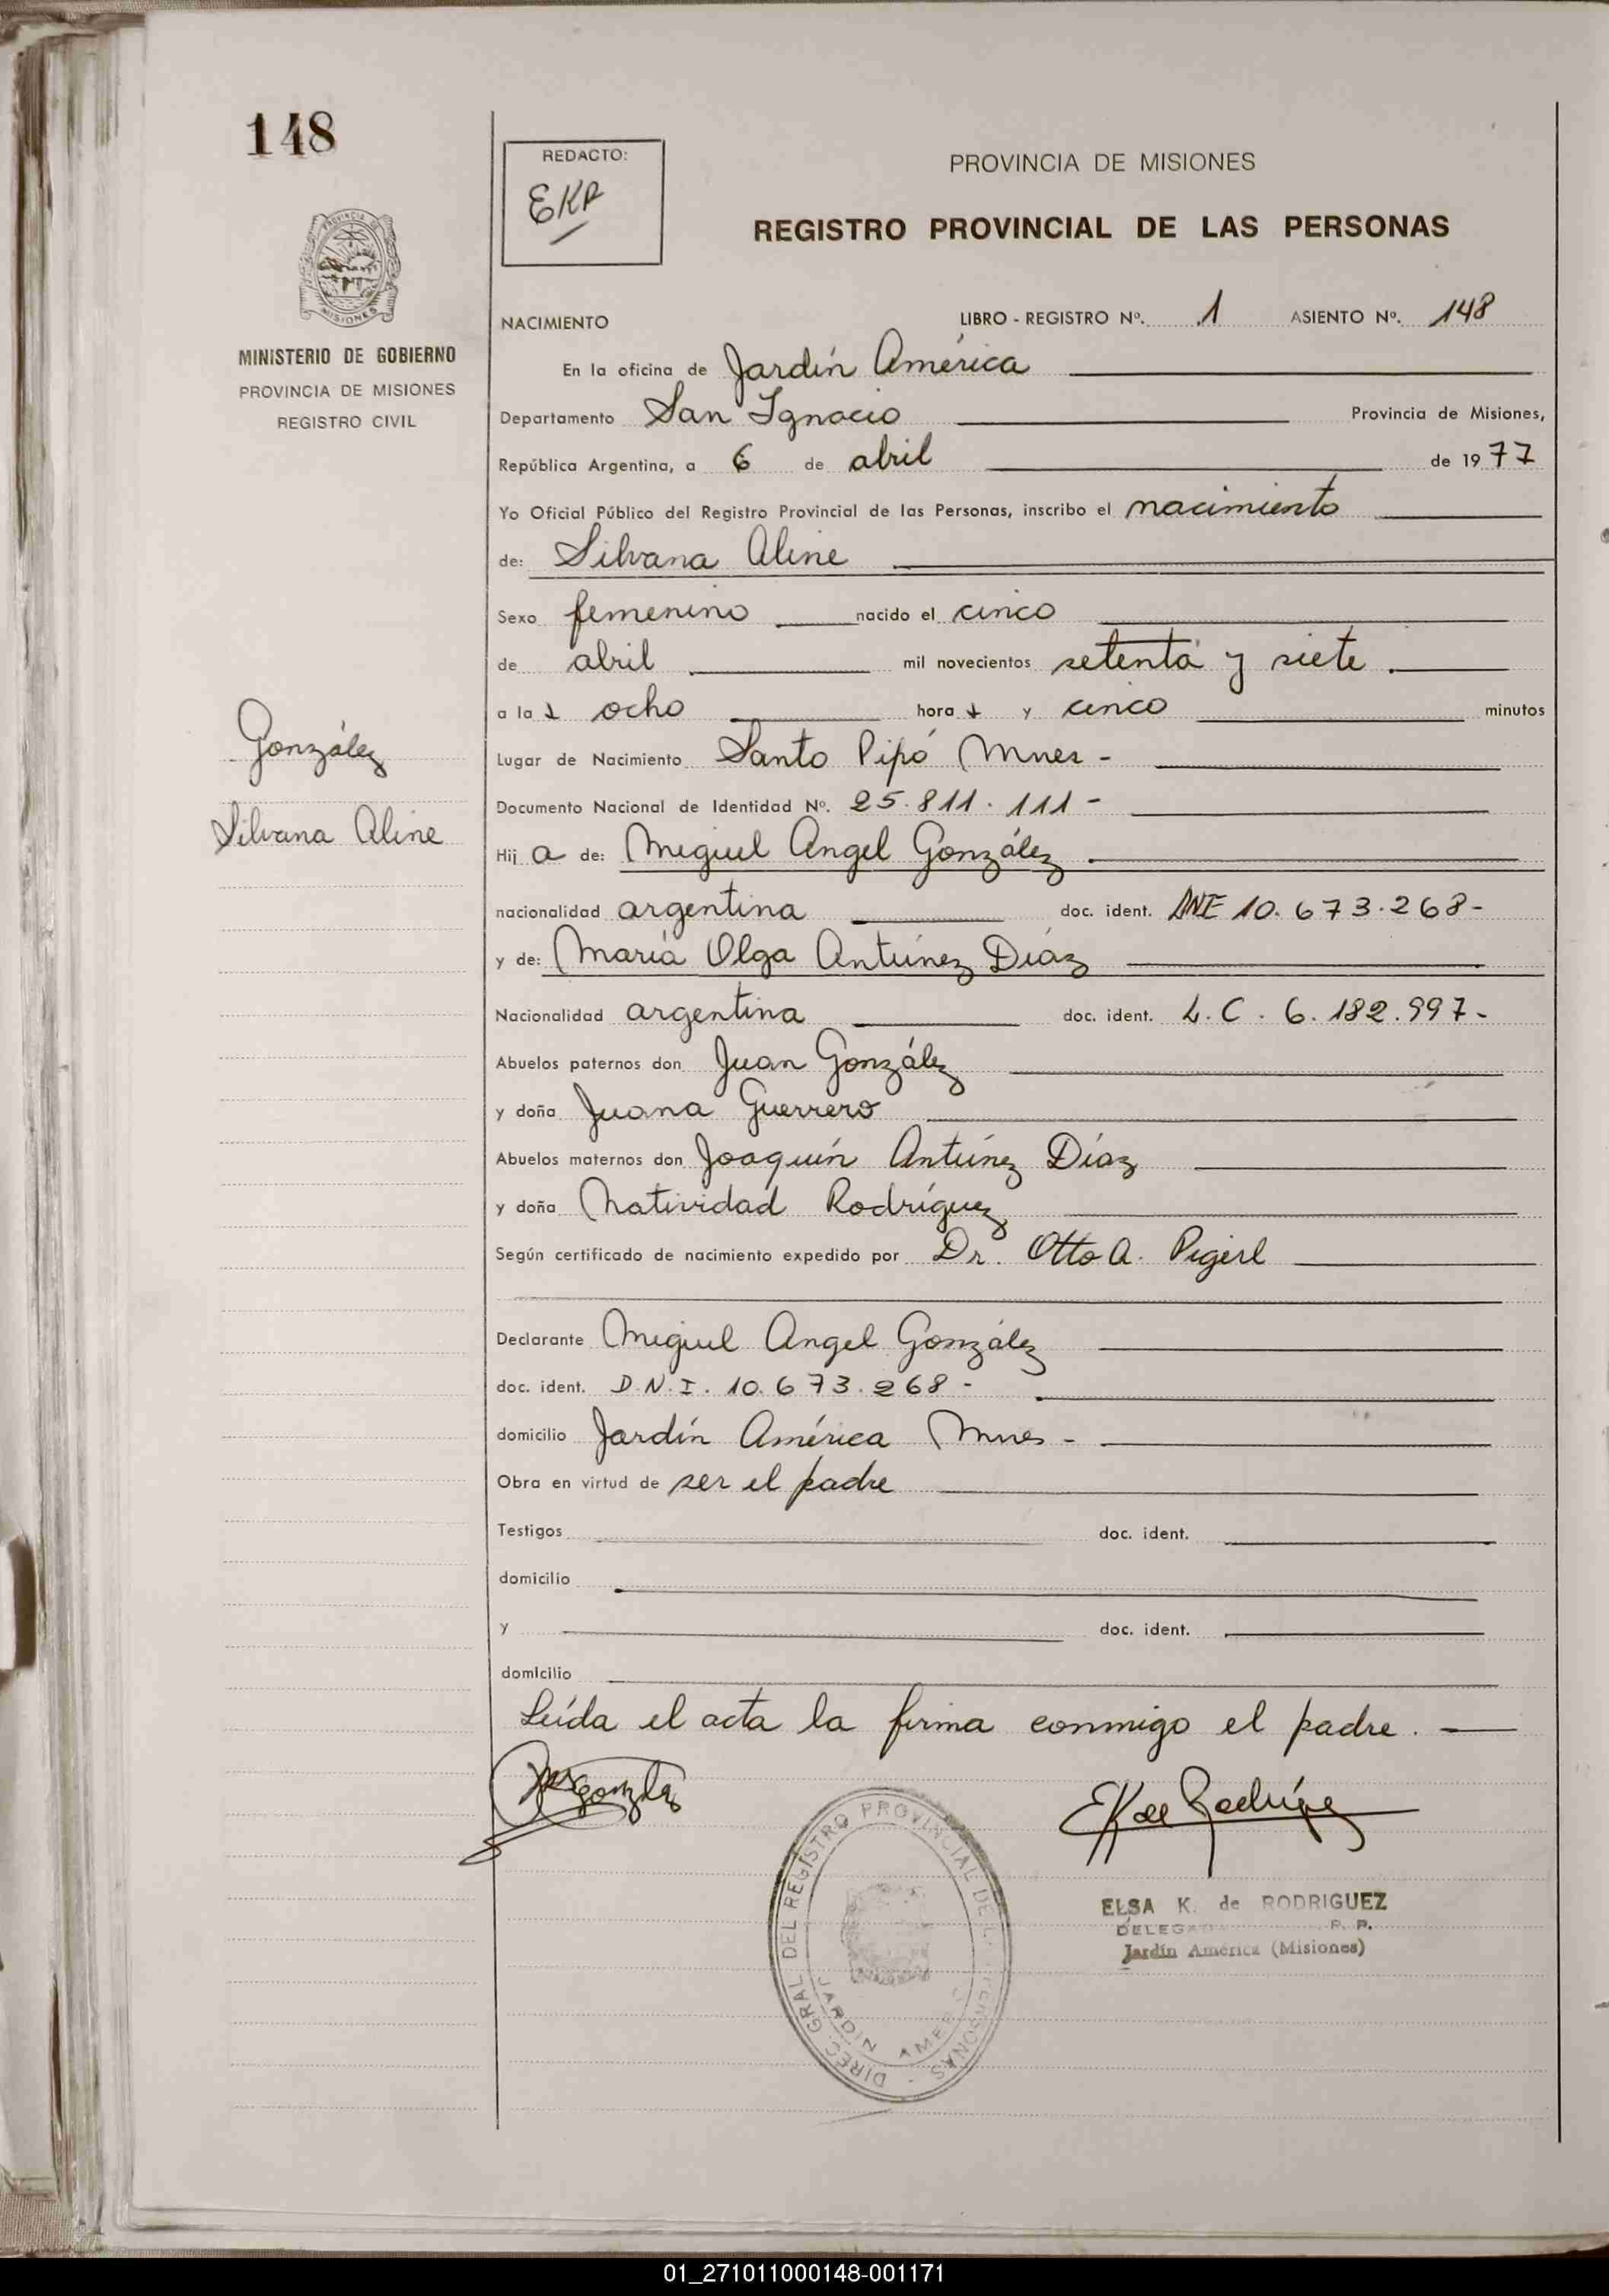 148
REDACTO:
EKR
PROVINCIA DE MISIONES
REGISTRO PROVINCIAL DE LAS PERSONAS
PROVINCIA DE
MISIONES
MINISTERIO DE GOBIERNO
PROVINCIA DE MISIONES
REGISTRO CIVIL
González
Silvana Aline
NACIMIENTO LIBRO - REGISTRO Nº. 1 ASIENTO Nº. 148
En la oficina de Jardín América
Departamento San Ignacio Provincia de Misiones,
República Argentina, a 6 de abril de 1977
Yo Oficial Público del Registro Provincial de las Personas, inscribo el nacimiento
de: Silvana Aline
Sexo femenino nacido el cinco
de abril mil novecientos setenta y siete.
a las ocho horas y cinco minutos
Lugar de Nacimiento Santo Pipó Mnes -
Documento Nacional de Identidad Nº. 25.811.111-
Hija de: Miguel Angel González.
nacionalidad argentina doc. ident. DNI 10.673.268-
y de: María Olga Antúnez Díaz
Nacionalidad argentina doc. ident. L.C. 6.182.997-
Abuelos paternos don Juan González
y doña Juana Guerrero
Abuelos maternos don Joaquín Antúnez Díaz
y doña Natividad Rodríguez
Según certificado de nacimiento expedido por Dr. Otto A. Pigerl
Declarante Miguel Angel González
doc. ident. D.N.I. 10.673.268-
domicilio Jardín América Mnes -
Obra en virtud de ser el padre
Testigos doc. ident.
domicilio
y doc. ident.
domicilio
Leída el acta la firma conmigo el padre.
González
EK de Rodríguez
DIREC. GRAL DEL REGISTRO PROVINCIAL DE L PERSONAS
JARDIN AMERI
ELSA K. de RODRIGUEZ
R. P.
Jardín América (Misiones)
01_271011000148-001171